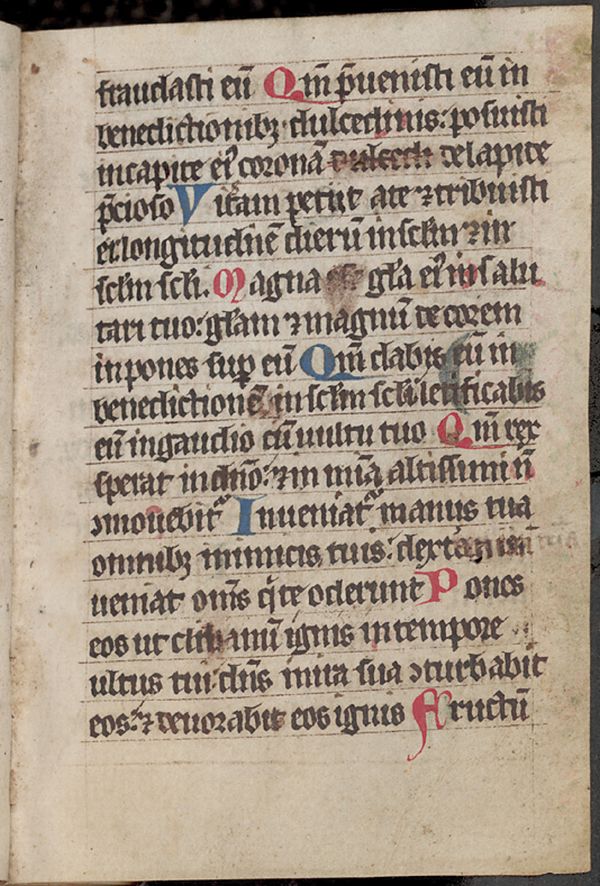 fraudasti eū Qm̄ p̄uenisti eū in
benedictionibꝫ dulcedinis: posuisti
in capite eiꝰ coronā dulcedi de lapite
p̄cioso Vitam petiit a te ⁊ tribuisti
ei longitudinē dierū in sc̄lm ⁊ in
sc̄lm sc̄li. Magna gl̄a eiꝰ in salu
tari tuo: gl̄am ⁊ magnū decorem
inpones sup eū Qm̄ dabis eū in
benedictionē in sc̄lm sc̄li letificabis
eū in gaudio cū uultu tuo Qm̄ rex
sperat in dn̄o: ⁊ in mīa altissimi n̄
ↄmouebit᷑ Inueniat᷑ manus tua
omnibꝫ inimicis tuis: dextera in
ueniat om̄s q̄ te oderunt Pones
eos ut clibanū ignis in tempore
ultus tui: dn̄s in ira sua ↄturbabit
eos: ⁊ deuorabit eos ignis Fructū